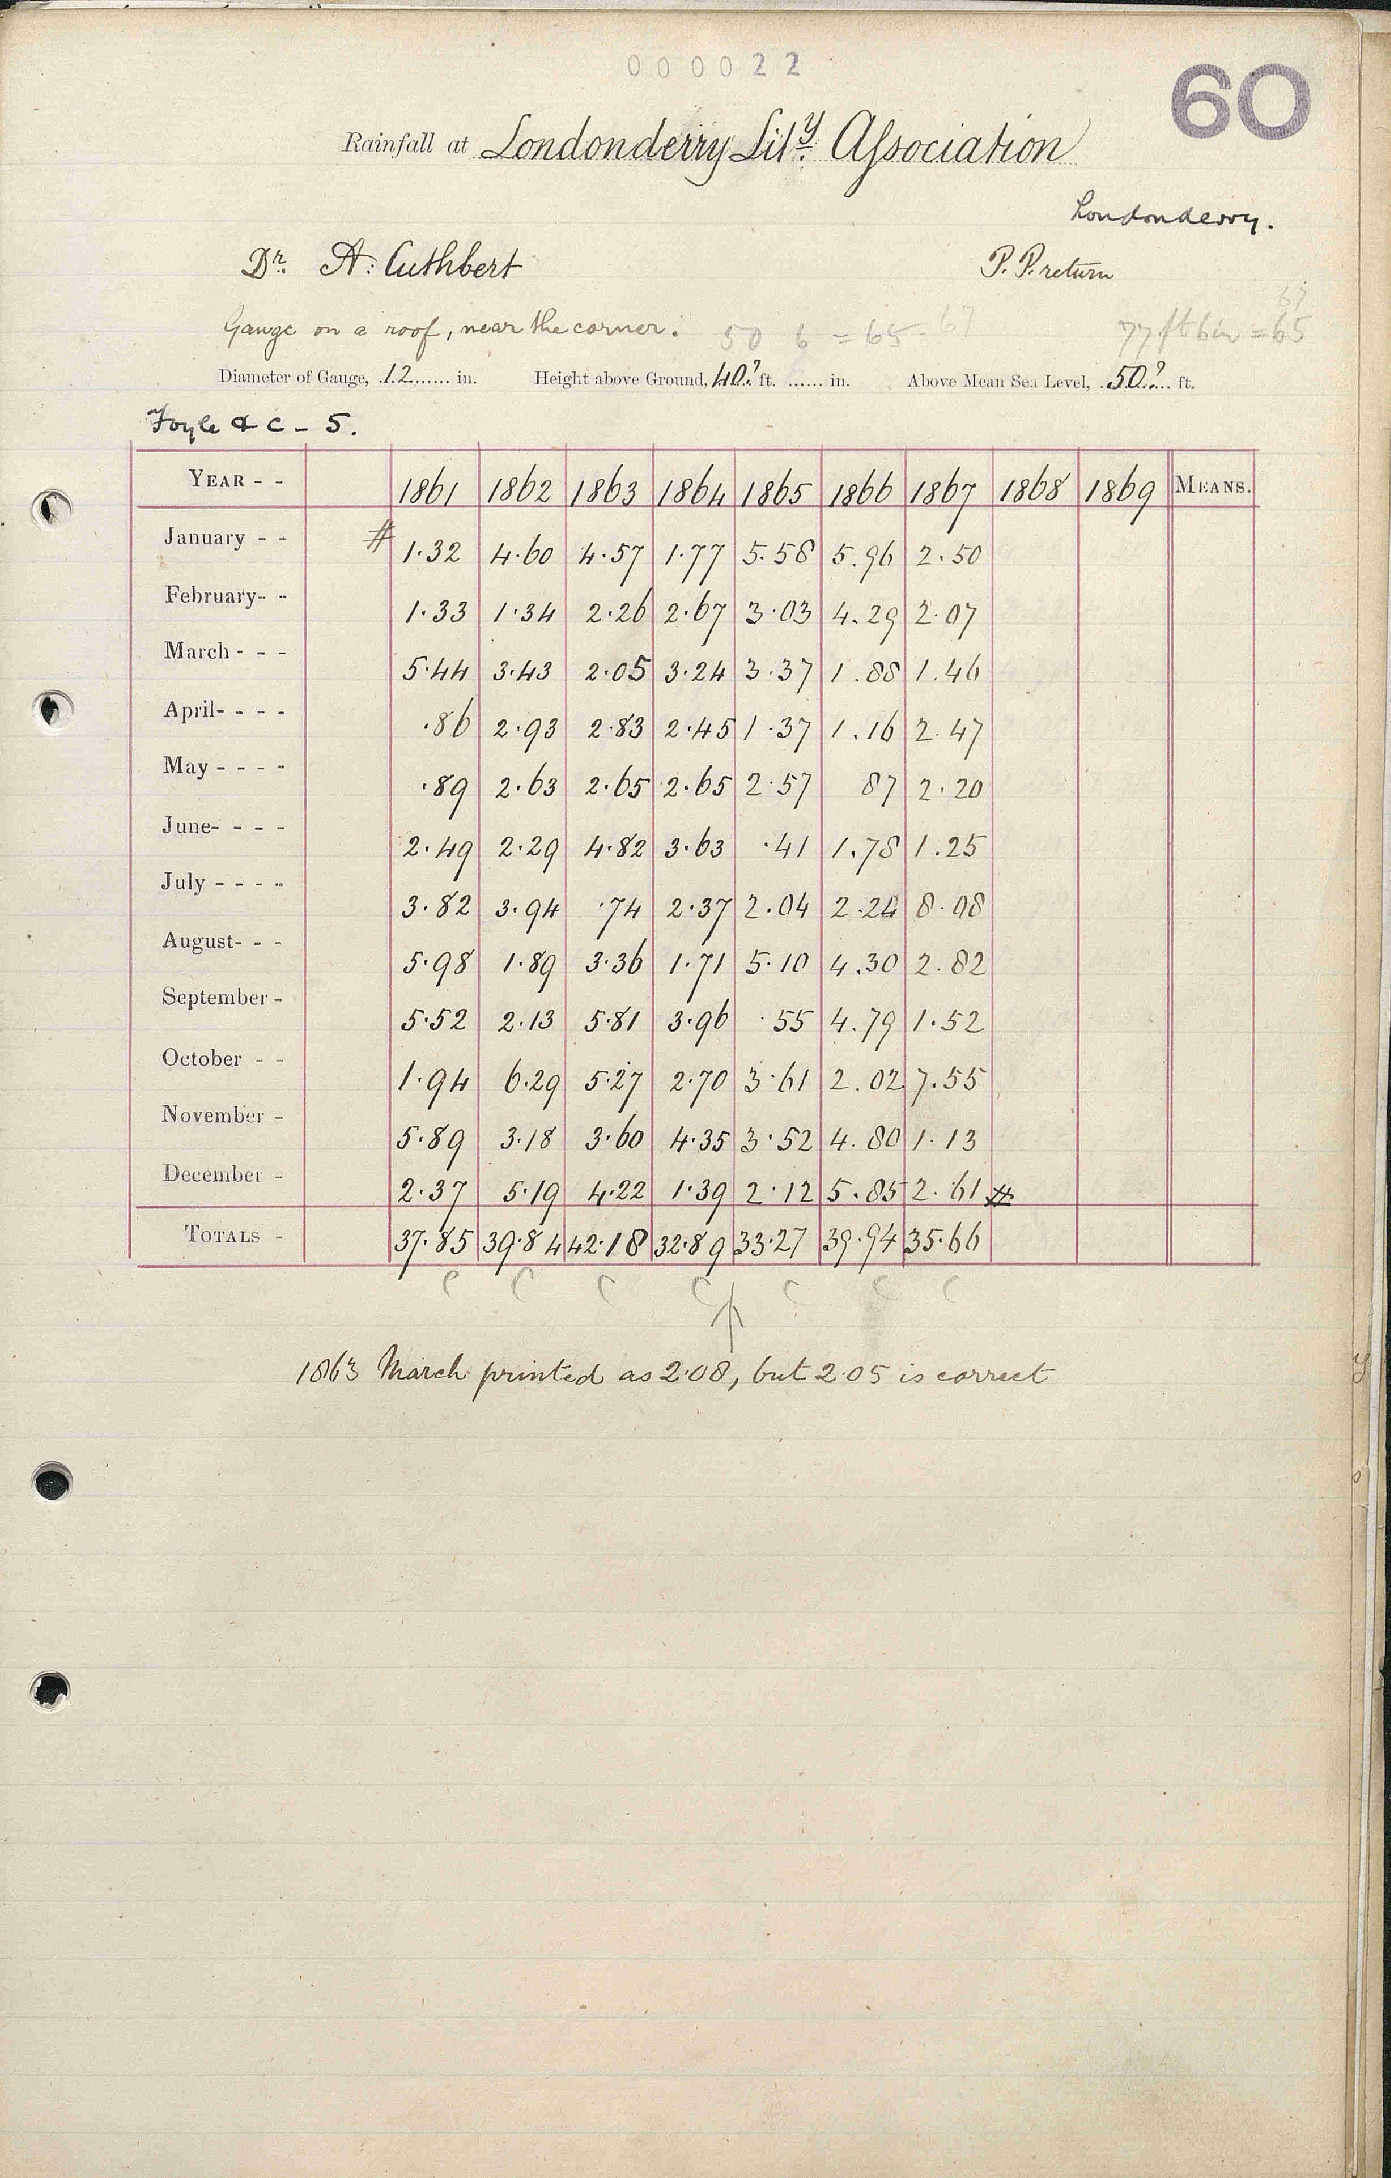 000022
60
Rainfall at Londonderry Lit.y Association
Londonderry.
Dr. A. Cuthbert P. P. return
Gauge on a roof, near the corner. 50 6 = 65 - 67 77 ft 6 in = 65
67
Diameter of Gauge, 12 in. Height above Ground, 40? ft. in. Above Mean Sea Level, 50? ft.
Foyle & C - 5.
YEAR - - 1861 1862 1863 1864 1865 1866 1867 1868 1869 MEANS.
January - - # 1.32 4.60 4.57 1.77 5.58 5.96 2.50
February- - 1.33 1.34 2.26 2.67 3.03 4.29 2.07
March - - - 5.44 3.43 2.05 3.24 3.37 1.88 1.46
April- - - - .86 2.93 2.83 2.45 1.37 1.16 2.47
May - - - - .89 2.63 2.65 2.65 2.57 87 2.20
June- - - - 2.49 2.29 4.82 3.63 .41 1.78 1.25
July - - - - 3.82 3.94 .74 2.37 2.04 2.24 8.08
August- - - 5.98 1.89 3.36 1.71 5.10 4.30 2.82
September - 5.52 2.13 5.81 3.96 .55 4.79 1.52
October - - 1.94 6.29 5.27 2.70 3.61 2.02 7.55
November - 5.89 3.18 3.60 4.35 3.52 4.80 1.13
December - 2.37 5.19 4.22 1.39 2.12 5.85 2.61 #
TOTALS - 37.85 39.84 42.18 32.89 33.27 39.94 35.66
c c c c c c c
1863 March printed as 2.08, but 2.05 is correct